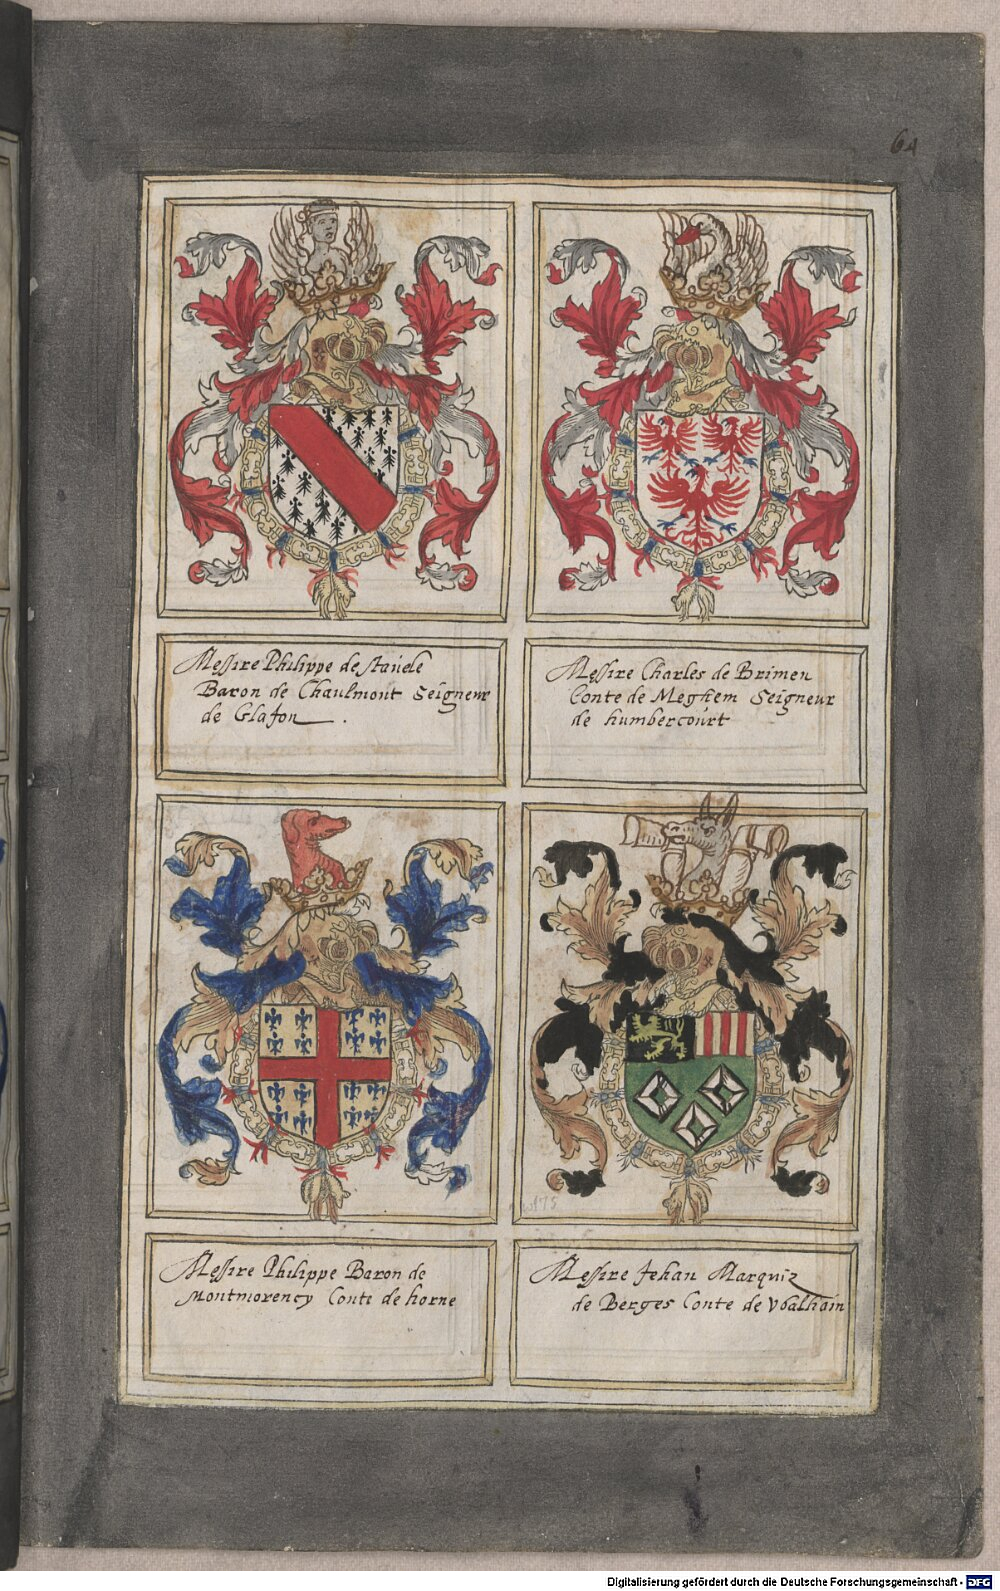 64
Messire Philippe de Stavele
Baron de Chaulmont Seigneur
de Glason
Messire Charles de Brimeu
Conte de Meghem Seigneur
de humbercourt
Messire Philippe Baron de
Montmorency Conte de horne
Messire Jehan Marquiz
de Berges Conte de Vualhain
Digitalisierung gefördert durch die Deutsche Forschungsgemeinschaft - DFG